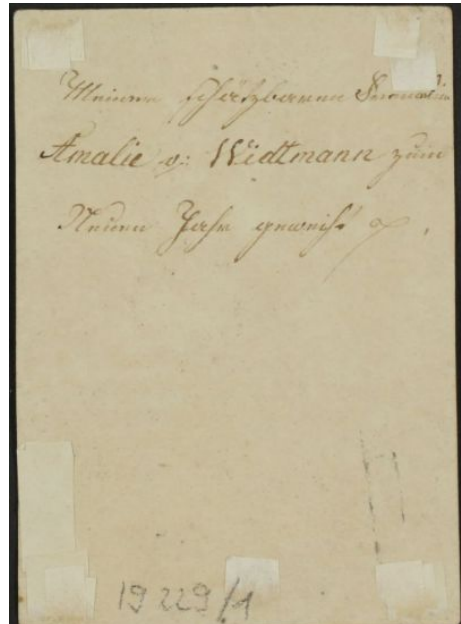 Meiner schätzbaren Freundin
Amalie v: Widtmann zum
Neuen Jahr geweiht
19 229/1